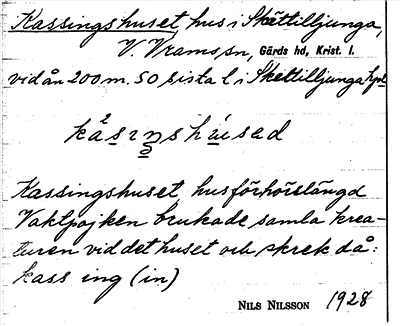 Kassingshuset, hus i Skättilljunga,
V. Vrams sn, Gärds hd, Krist. l.
vid ån 200 m. SO sista l i Skettilljunga
kasinshused
Kassingshuset, hus förhörslängd
Vaktpojken brukade samla krea-
turen vid det huset och skrek då:
kass ing (in)
NILS NILSSON 1928